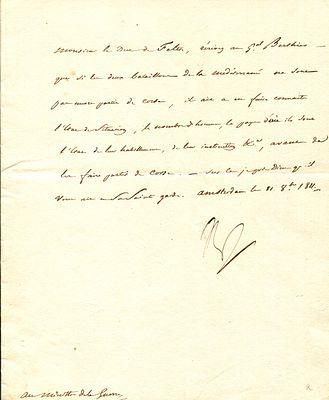 Monsieur le Duc de Feltre, écrivez au Gal Berthier
que si les deux bataillons de la méditerranée ne sont
pas encore partis de corse, il ait à en faire connaitre
l'état de situation, le nombre d'hommes, le pays d'où ils sont
l'état de leur habillement, de leur instruction &ca, avant de
les faire partir de Corse. — sur ce, je prie Dieu qu'il
vous ait en Sa Sainte garde. amsterdam le 11 8bre 1811
Np
au Ministre de la Guerre